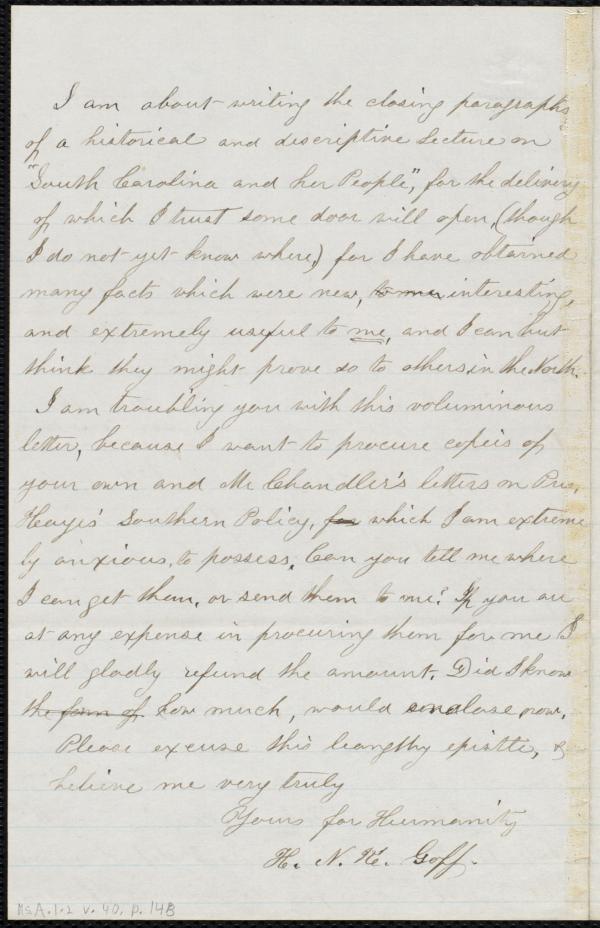 I am about writing the closing paragraphs
of a historical and descriptive Lecture on
"South Carolina and her People", for the delivery
of which I trust some door will open, (though
I do not yet know where,) for I have obtained
many facts which were new, to me, interesting,
and extremely useful to me, and I can but
think they might prove so to others, in the North.
I am troubling you with this voluminous
letter, because I want to procure copies of
your own and Mr Chandler's letters on Pres.
Hayes' Southern Policy, for which I am extreme
ly anxious, to possess. Can you tell me where
I can get them, or send them to me? If you are
at any expense in procuring them for me I
will gladly refund the amount. Did I know
the form of how much, would enclose now.
Please excuse this leangthy epistle, &
believe me very truly
Yours for Humanity
H. N. K. Goff.
Ms A.1.2 v. 40, p. 14B